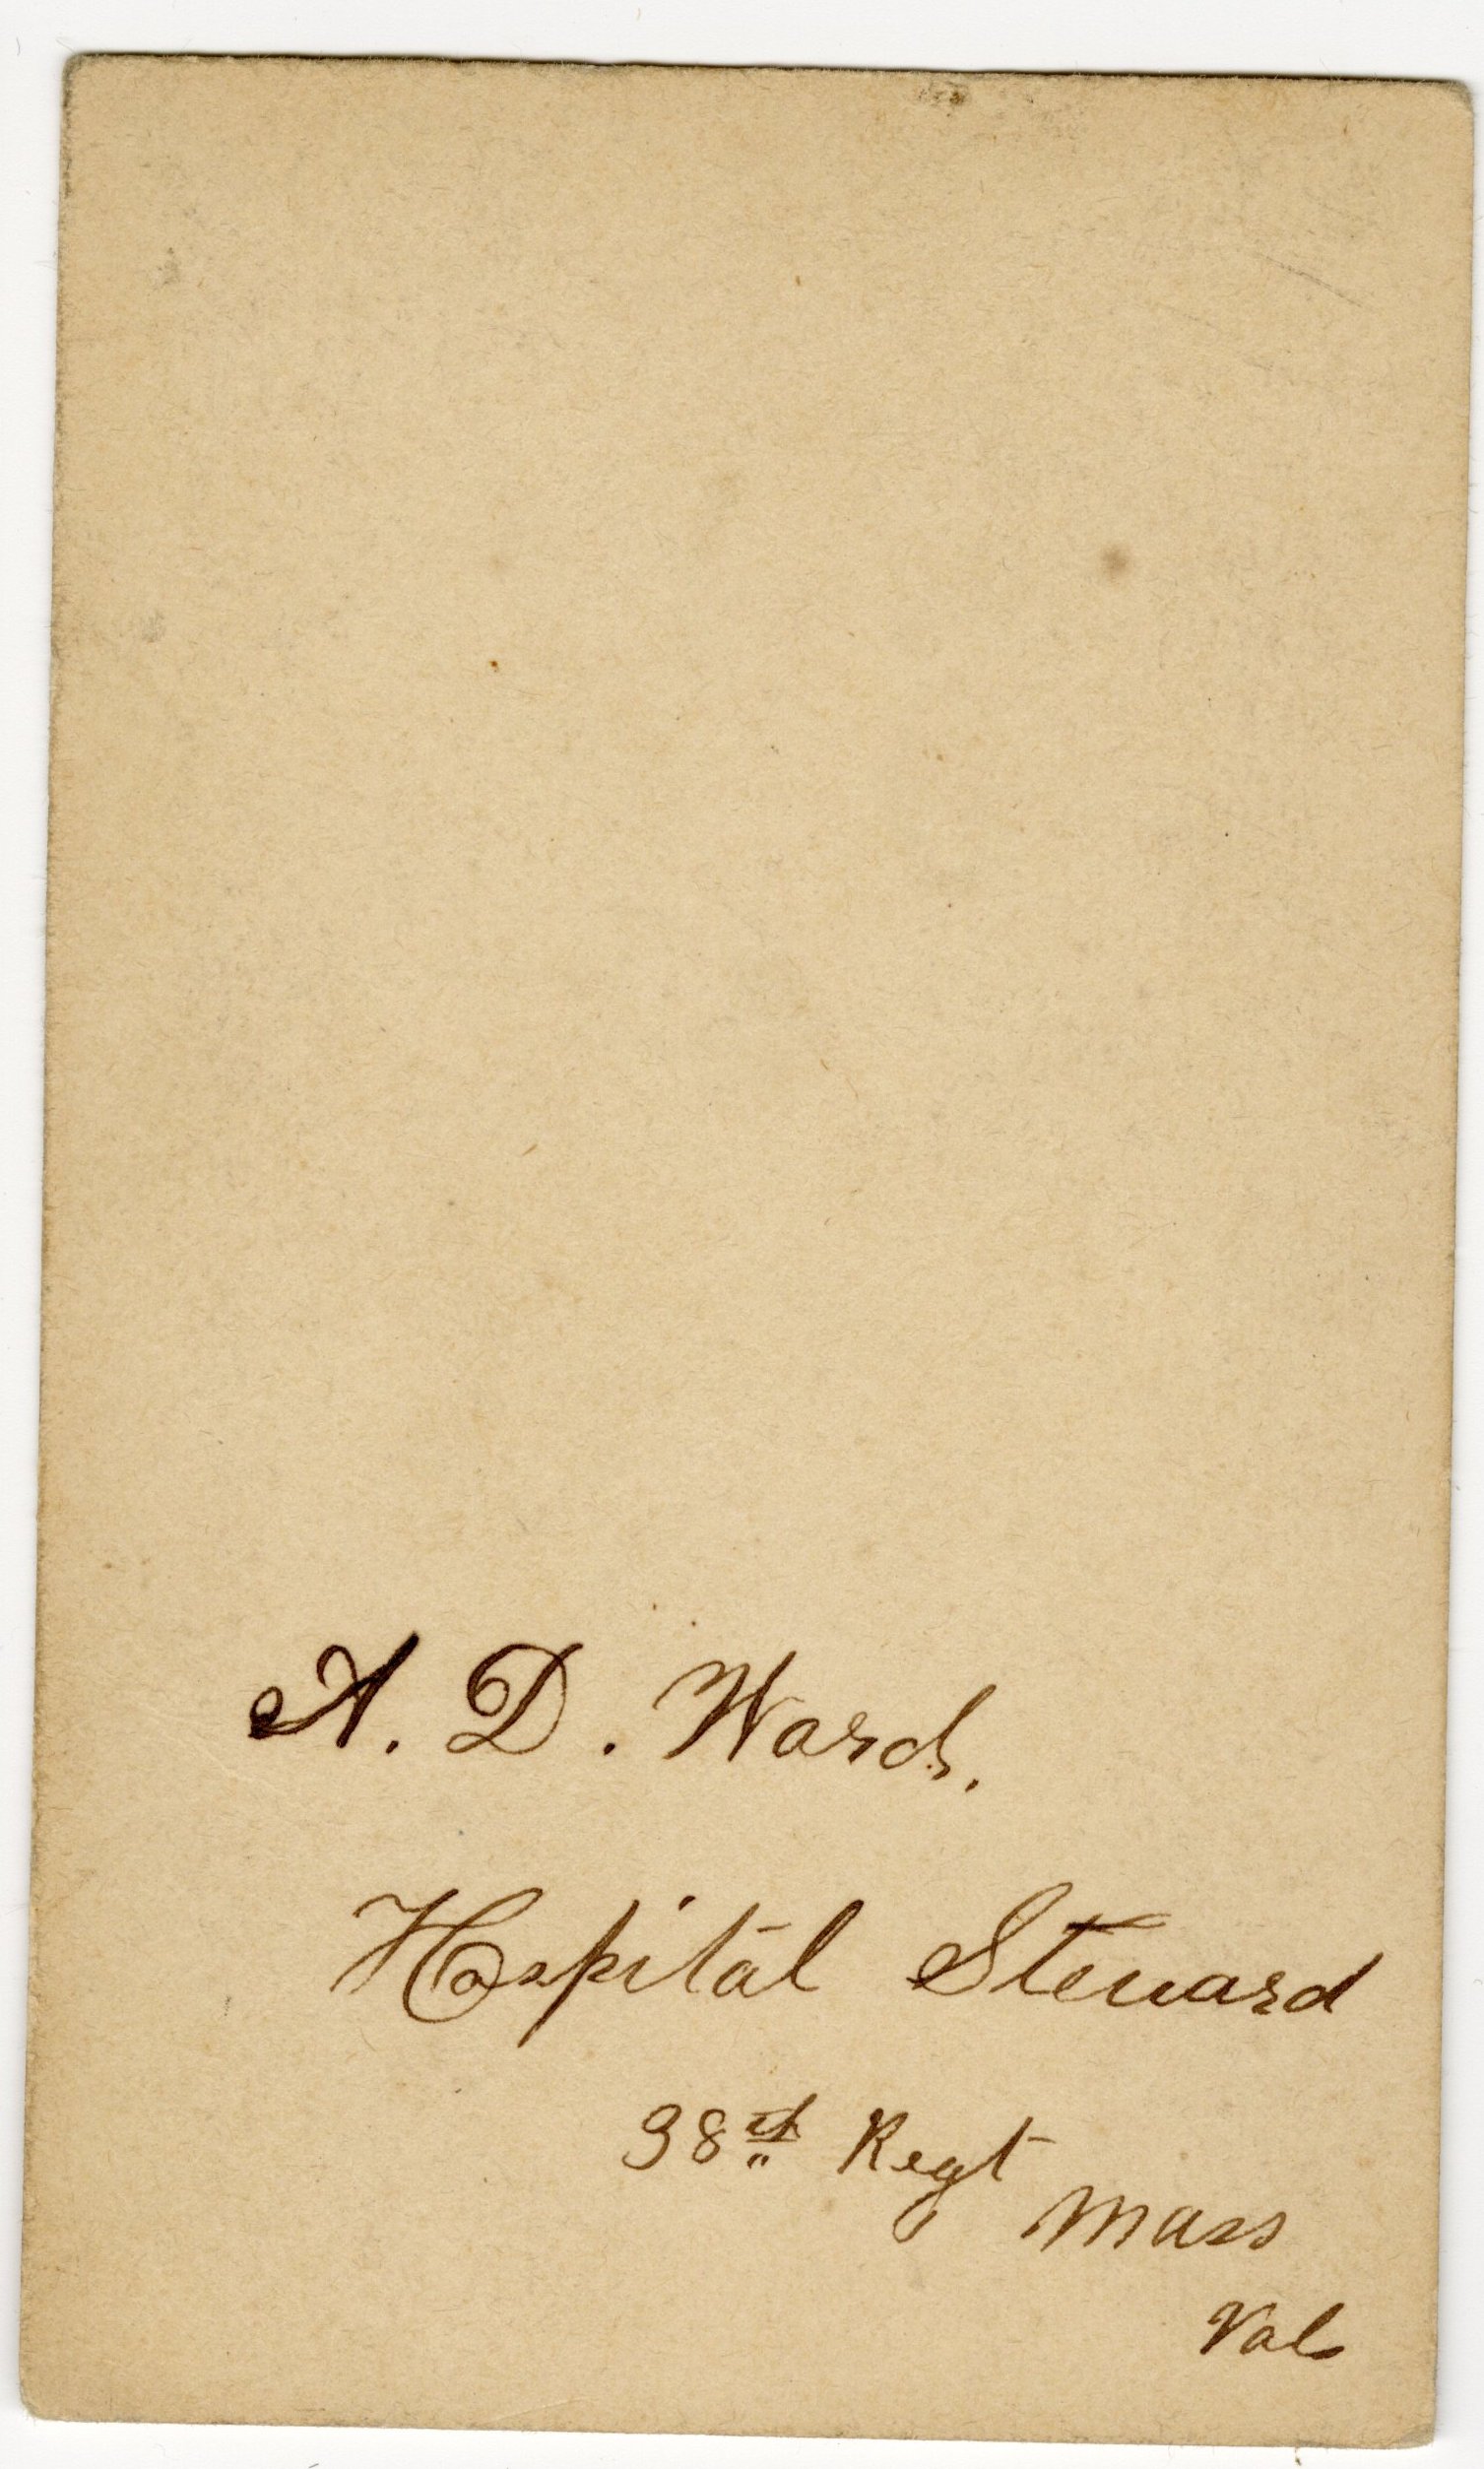 A. D. Ward.
Hospital Steward
38th Regt
Mass
Vols